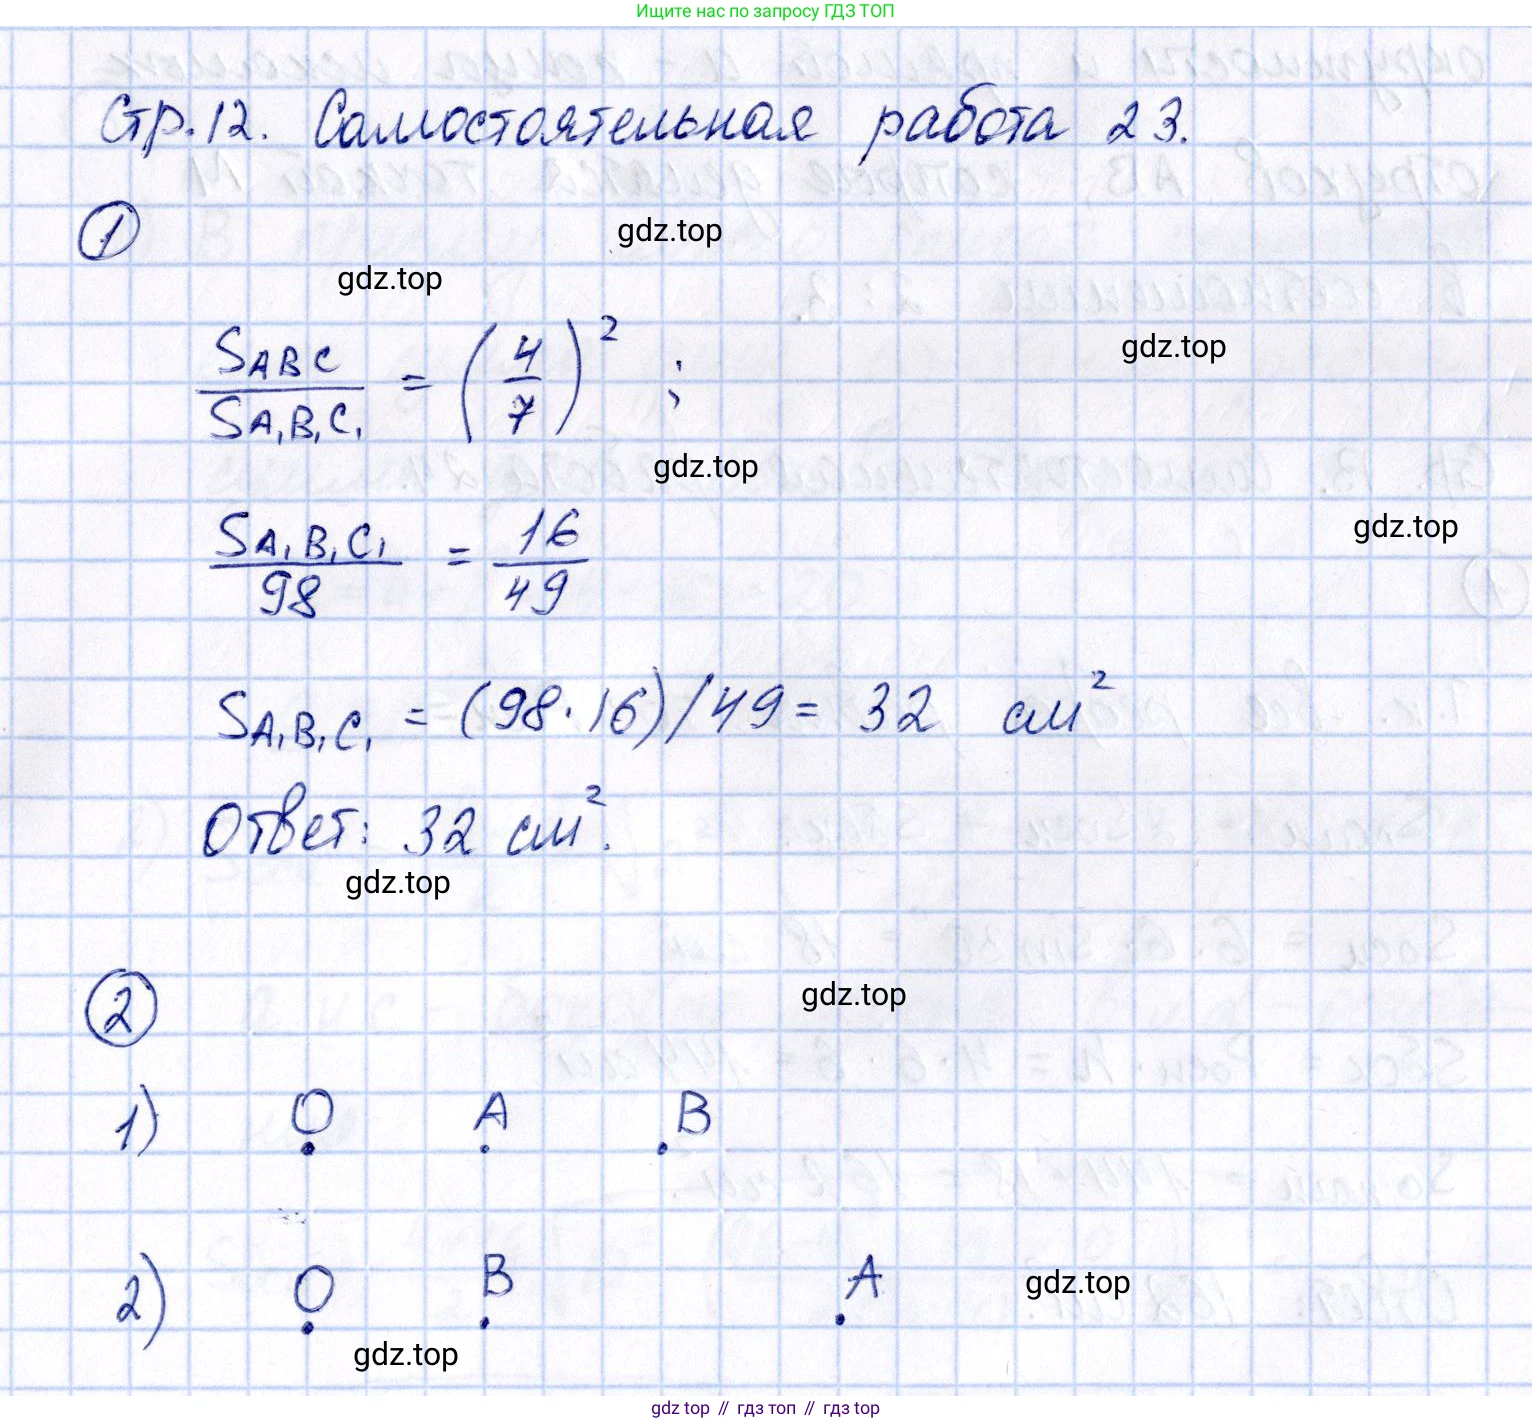 Ищите нас по запросу ГДЗ ТОП
Стр. 12. Самостоятельная работа 23.
1
gdz.top
gdz.top
S_ABC / S_A₁B₁C₁ = (4/7)² ;
gdz.top
gdz.top
gdz.top
S_A₁B₁C₁ / 98 = 16/49
S_A₁B₁C₁ = (98·16)/49 = 32 см²
Ответ: 32 см².
gdz.top
2
gdz.top
1) O A B
2) O B A
gdz.top
gdz.top
gdz top // гдз топ // гдз top